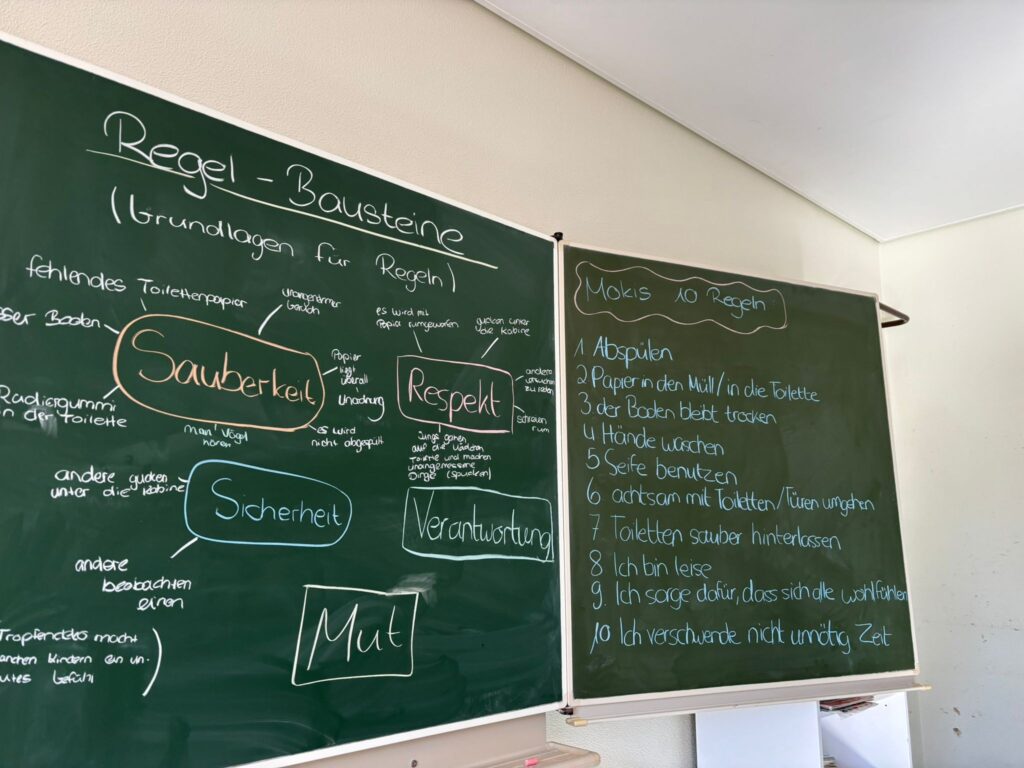 Regel - Bausteine
(Grundlagen für Regeln)
fehlendes Toilettenpapier
unangenehmer
Geruch
Boden
Sauberkeit
Papier
liegt
überall
Unordnung
es wird
nicht abgespült
Radiergummi
in der Toilette
man Vögel
hören
es wird mit
Papier rumgeworfen
gucken unter
die Kabine
Respekt
andere
versuchen
zu
schreien
rum
Jungs gehen
auf die
Toilette und machen
unangemessene
Dinge
andere gucken
unter die Kabine
Sicherheit
andere
beobachten
einen
Verantwortung
Mut
macht
Kindern ein un-
Gefühl
Mokis 10 Regeln
1 Abspülen
2 Papier in den Müll/in die Toilette
3. der Boden bleibt trocken
4 Hände waschen
5 Seife benutzen
6 achtsam mit Toiletten/Türen umgehen
7 Toiletten sauber hinterlassen
8 Ich bin leise
9. Ich sorge dafür, dass sich alle wohlfühlen
10 Ich verschwende nicht unnötig Zeit